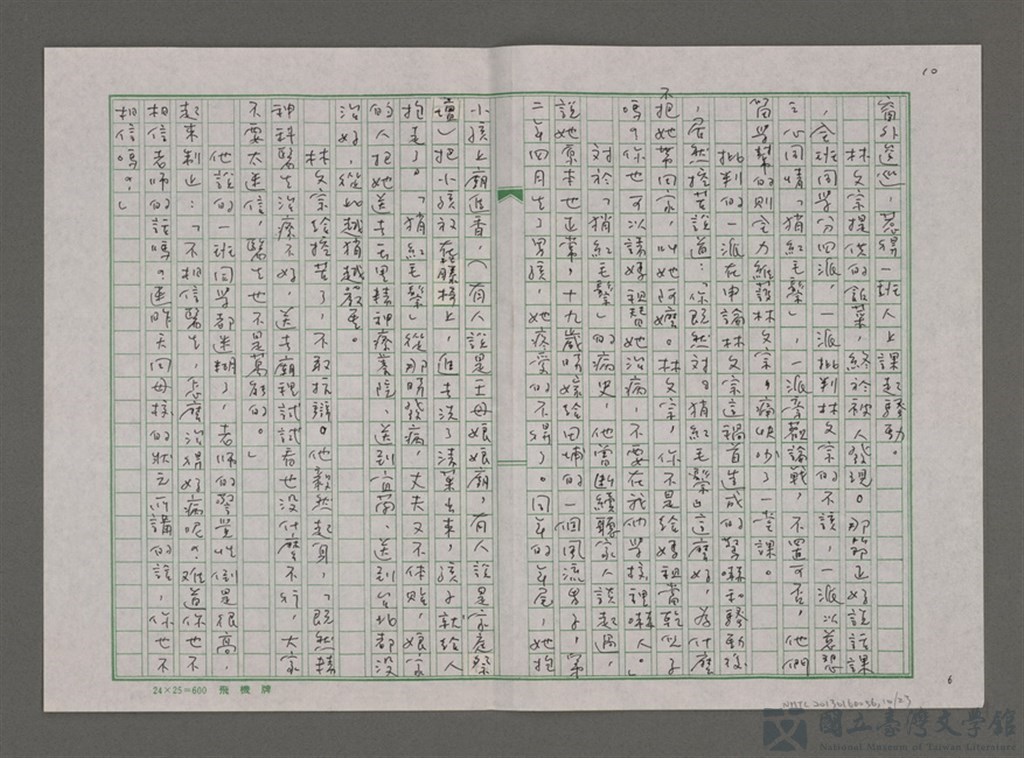 10
窗外逡巡，惹得一班人上課起騷動。
林文宗提供的飯菜，終於被人發現。那節正好說話課
，全班同學分四派，一派批判林文宗的不該，一派以慈悲
之心同情「猶紅毛鬃」，一派旁觀論戰，不置可否，他們
同學幫的則全力維護林文宗，痛快吵了一堂課。
批判的一派在申論林文宗這禍首造成的驚嚇和騷動後
，居然挖苦說道：「你既然對『猶紅毛鬃』這麼好，為什麼
不把她帶回家，叫她阿嬤。林文宗，你不是給媽祖當乾兒子
嗎？你也可以請媽祖替她治病，不要在我們學校裡嚇人。」
對於「猶紅毛鬃」的病史，他曾斷續聽家人談起過，
說她原本也正常，十九歲時嫁給田埔的一個風流男子，第
二年四月生了男孩，她疼愛的不得了。同年的年尾，她抱
小孩上廟進香，（有人說是王母娘娘廟，有人說是家庭祭
壇）把小孩放在藤椅上，進去洗了漢菓出來，孩子就給人
抱走了。「猶紅毛鬃」從那時發病，丈夫又不体貼，娘家
的人把她送去玉里精神療養院、送到宜蘭、送到台北都沒
治好，從此越猶越嚴重。
林文宗給挖苦了，不敢抗辯。他毅然起身，「既然精
神科醫生治療不好，送去廟裡試試看也沒什麼不行，大家
不要太迷信，醫生也不是萬能的。」
他說的一班同學都迷糊了，老師的警覺性倒是很高，
起來制止：「不相信醫生，怎麼治得好病呢？難道你也不
相信老師的話嗎？連昨天回母校的狀元所講的話，你也不
相信嗎？」
24×25=600 飛機牌
6
國立臺灣文學館
National Museum of Taiwan Literature